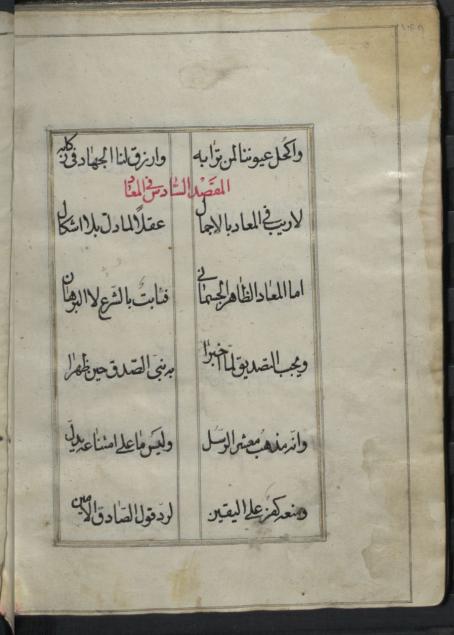 واكحل عيوننا لمن ترابه وارزق لنا الجهاد في ركابه
المقصد السادس في المعاد
لاريب في المعاد بالاجمال عقلا لما دل بلا اشكال
اما المعاد الظاهر الجسماني فثابت بالشرع لا البرهان
ويجب التصديق لما اخبرا به نبي الصدق حين ظهرا
وانه مذهب معشر الرسل وليس ما على امتناعه يدل
ومنعه كفر على اليقين لرد قول الصادق الامين